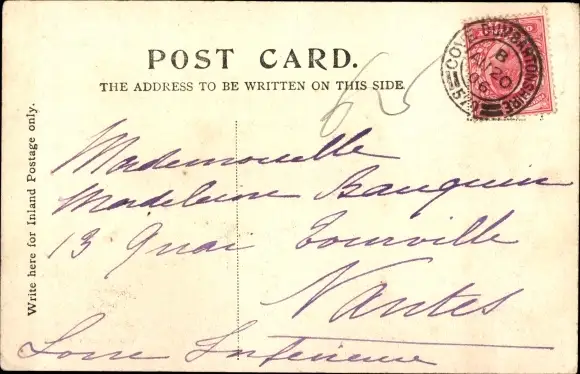 POST CARD.
THE ADDRESS TO BE WRITTEN ON THIS SIDE.
Write here for Inland Postage only.
COVE DUMBARTONSHIRE
B
20
06
57
65
Mademoiselle
Madeleine Bauquin
13 Quai Tourville
Nantes
Loire Inférieure